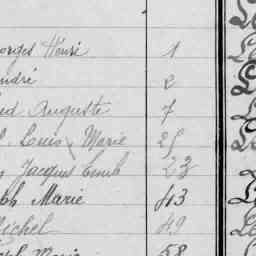 orges Henri 1
ndré 2
ed Auguste 7
Louis Marie 25
Jacques Emile 23
ph Marie 43
ichel 49
Marie 58